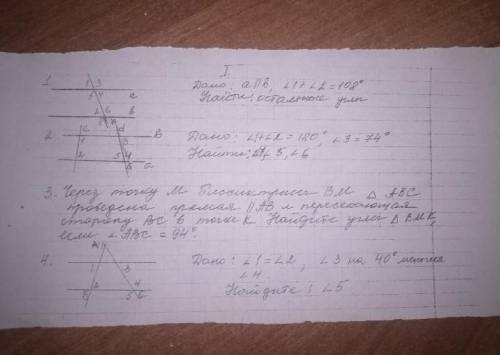 I
1.
1 3
2 4
a
6
b
Дано: a∏b, ∠1+∠2=108°
Найти: остальные углы
2.
c
d
b
1
3
2
5 4
6
a
Дано: ∠1+∠2=180°, ∠3=74°
Найти: ∠5, ∠6
3. Через точку M биссектрисы BM △ ABC
проведена прямая ∥AB и пересекающая
сторону BC в точке K. Найдите углы △ BMK,
если ∠ABC = 94°.
4.
1
3
2
4
5
Дано: ∠1=∠2, ∠3 на 40° меньше
∠4
Найдите: ∠5